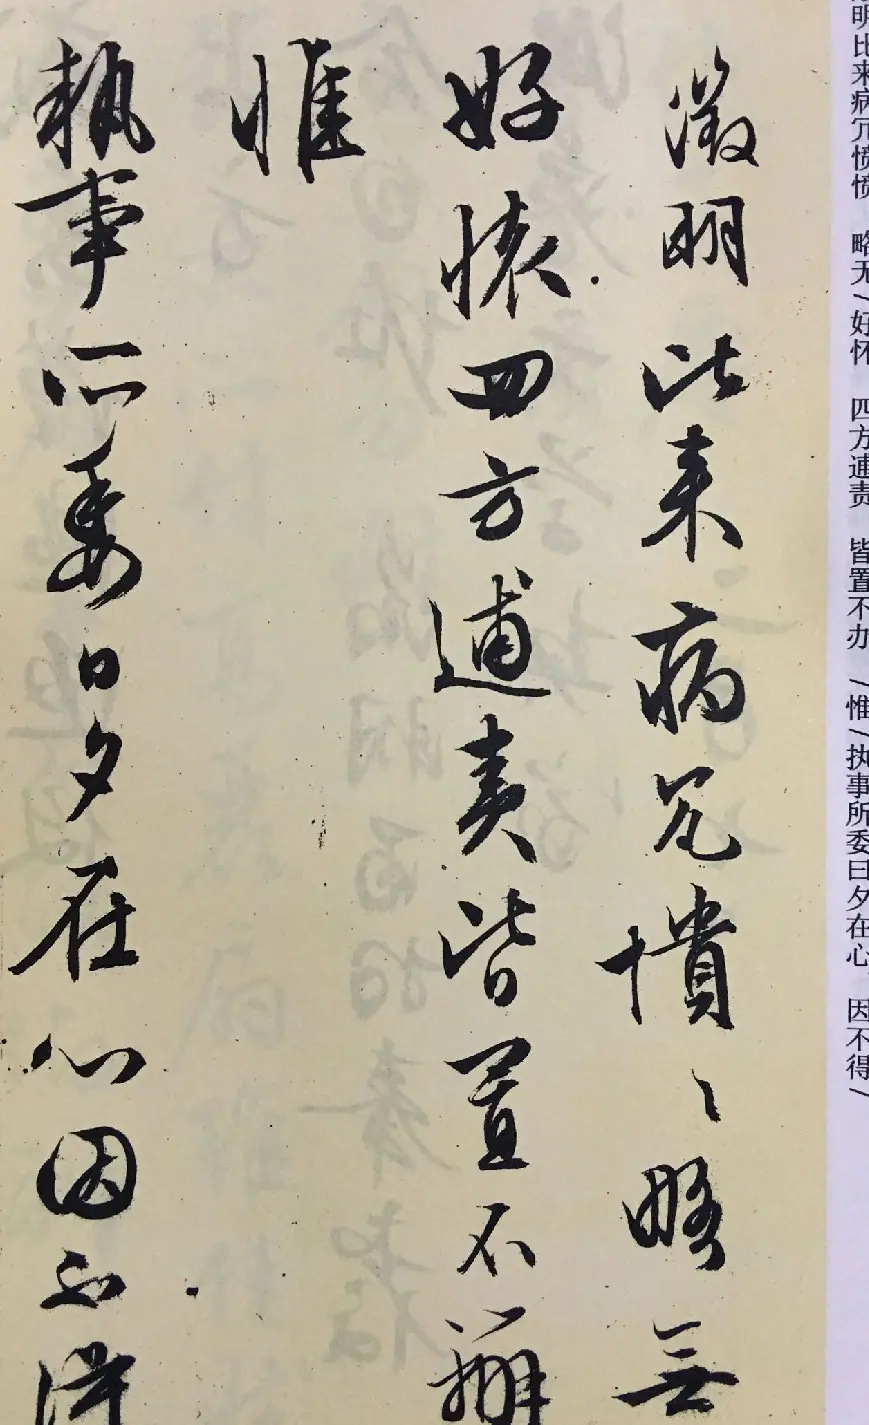 明比来病冗愦愦 略无/好怀 四方逋责 皆置不办 /惟/执事所委日夕在心 因不得/
徵明比来病冗愦〻略無
好懷四方逋责皆置不辦
惟
執事所委日夕在心因不得